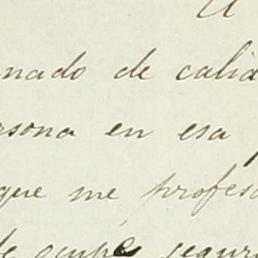 A
nado de calid
rsona en esa p
que me profesa
de ocupés segur